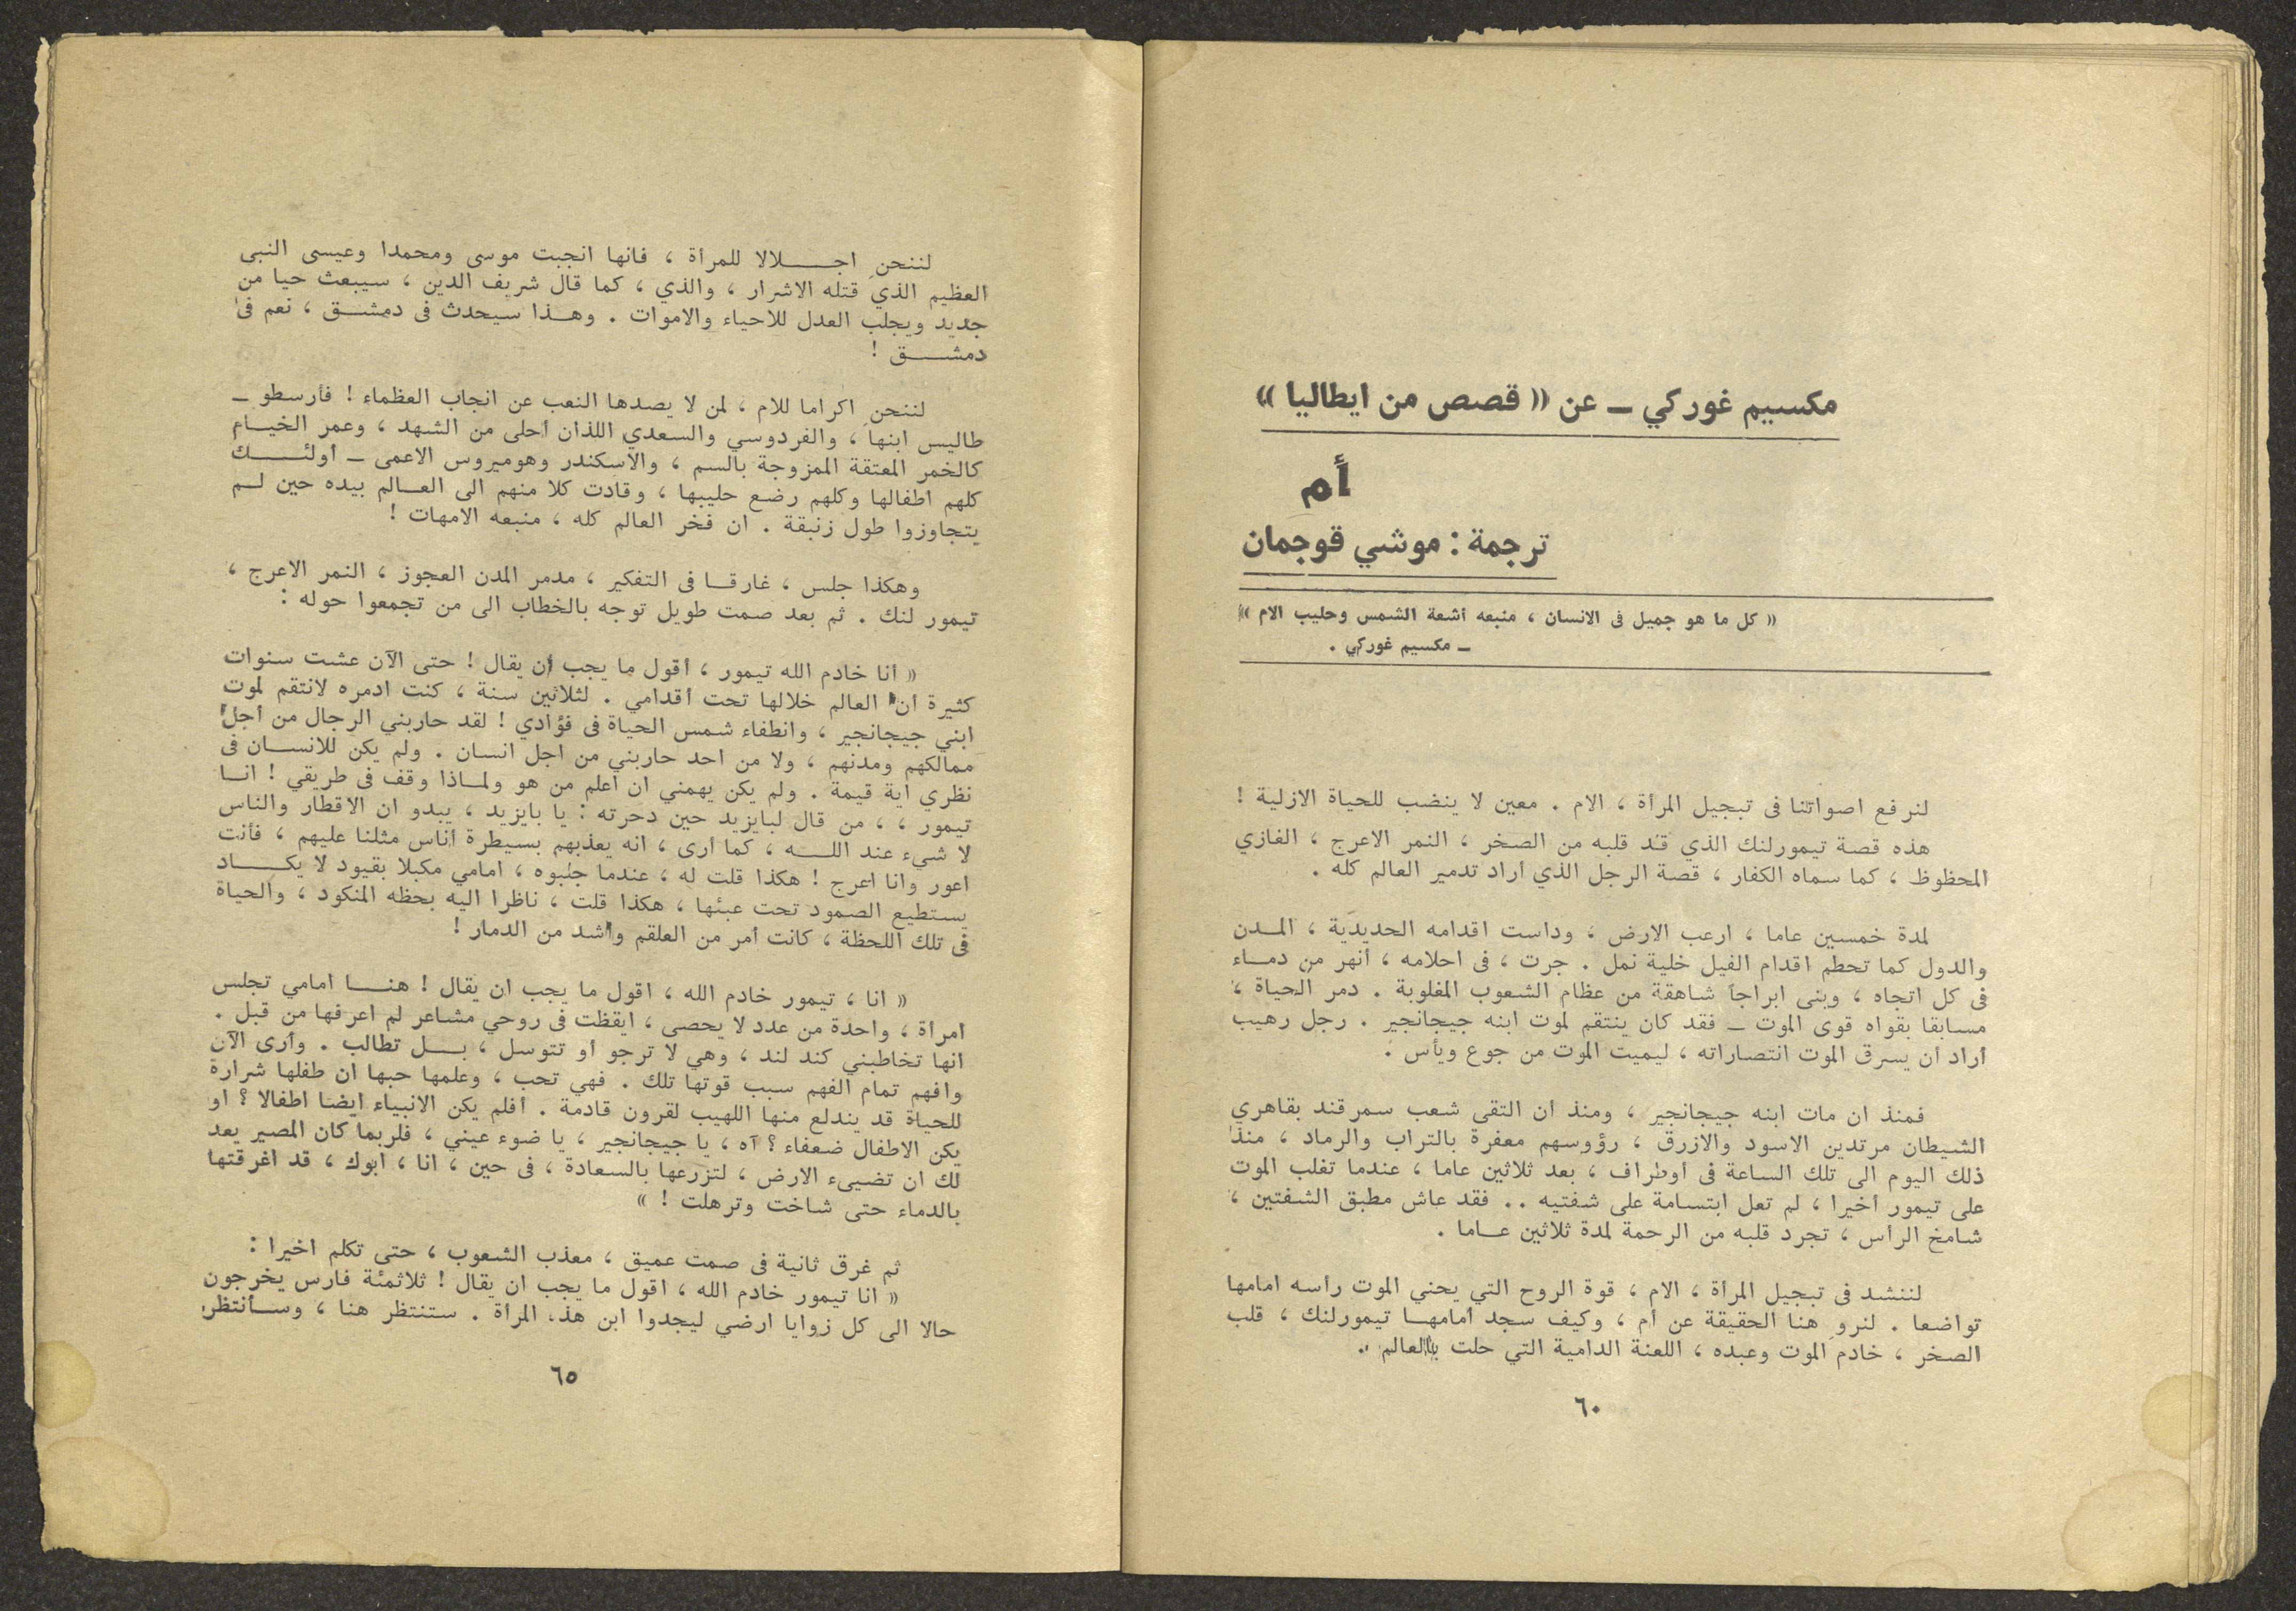 مكسيم غوركي ــ عن « قصص من ايطاليا »
أم
ترجمة : موشي قوجمان
« كل ما هو جميل فى الانسان ، منبعه أشعة الشمس وحليب الام »
ــ مكسيم غوركي .
لنرفع اصواتنا فى تبجيل المرأة ، الام . معين لا ينضب للحياة الازلية !
هذه قصة تيمورلنك الذي قد قلبه من الصخر ، النمر الاعرج ، الغازي
المحظوظ ، كما سماه الكفار ، قصة الرجل الذي أراد تدمير العالم كله .
لمدة خمسين عاما ، ارعب الارض ، وداست اقدامه الحديدية ، المــدن
والدول كما تحطم اقدام الفيل خلية نمل . جرت ، فى احلامه ، أنهر من دمــاء
فى كل اتجاه ، وبنى ابراجاً شاهقة من عظام الشعوب المغلوبة . دمر الحياة ،
مسابقا بقواه قوى الموت ــ فقد كان ينتقم لموت ابنه جيجانجير . رجل رهيب
أراد أن يسرق الموت انتصاراته ، ليميت الموت من جوع ويأس .
فمنذ ان مات ابنه جيجانجير ، ومنذ ان التقى شعب سمرقند بقاهري
الشيطان مرتدين الاسود والازرق ، رؤوسهم معفرة بالتراب والرماد ، منذ
ذلك اليوم الى تلك الساعة فى أوطراف ، بعد ثلاثين عاما ، عندما تغلب الموت
على تيمور أخيرا ، لم تعل ابتسامة على شفتيه .. فقد عاش مطبق الشفتين ،
شامخ الرأس ، تجرد قلبه من الرحمة لمدة ثلاثين عــاما .
لننشد فى تبجيل المرأة ، الام ، قوة الروح التي يحني الموت رأسه امامها
تواضعا . لنروِ هنا الحقيقة عن أم ، وكيف سجد أمامهــا تيمورلنك ، قلب
الصخر ، خادم الموت وعبده ، اللعنة الدامية التي حلت بالعالم .
٦٠
لننحنِ اجــــلالا للمرأة ، فانها انجبت موسى ومحمدا وعيسى النبى
العظيم الذي قتله الاشرار ، والذي ، كما قال شريف الدين ، سيبعث حيا من
جديد ويجلب العدل للاحياء والاموات . وهــذا سيحدث فى دمشــق ، نعم فى
دمشـــق !
لننحنِ اكراما للام ، لمن لا يصدها التعب عن انجاب العظماء ! فأرسطو ــ
طاليس ابنها ، والفردوسي والسعدي اللذان أحلى من الشهد ، وعمر الخيــام
كالخمر المعتقة الممزوجة بالسم ، والاسكندر وهوميروس الاعمى ــ أولئـــك
كلهم اطفالها وكلهم رضع حليبها ، وقادت كلا منهم الى العــالم بيده حين لــم
يتجاوزوا طول زنبقة . ان فخر العالم كله ، منبعه الامهات !
وهكذا جلس ، غارقــا فى التفكير ، مدمر المدن العجوز ، النمر الاعرج ،
تيمور لنك . ثم بعد صمت طويل توجه بالخطاب الى من تجمعوا حوله :
« أنا خادم الله تيمور ، أقول ما يجب أن يقال ! حتى الآن عشت سنوات
كثيرة أن العالم خلالها تحت أقدامي . لثلاثين سنة ، كنت ادمره لانتقم لموت
ابني جيجانجير ، وانطفاء شمس الحياة فى فؤادي ! لقد حاربني الرجال من أجل
ممالكهم ومدنهم ، ولا من احد حاربني من اجل انسان . ولم يكن للانســان فى
نظري أية قيمة . ولم يكن يهمني ان اعلم من هو ولمــاذا وقف فى طريقي ! انــا
تيمور ، ، من قال لبايزيد حين دحرته : يا بايزيد ، يبدو ان الاقطار والناس
لا شيء عند اللـــه ، كما أرى ، انه يعذبهم بسيطرة أناس مثلنا عليهم ، فأنت
اعور وانا اعرج ! هكذا قلت له ، عندما جلبوه ، امامي مكبلا بقيود لا يكـــاد
يستطيع الصمود تحت عبئها ، هكذا قلت ، ناظرا اليه بحظه المنكود ، والحياة
فى تلك اللحظة ، كانت أمر من العلقم وأشد من الدمار !
« انا ، تيمور خادم الله ، اقول ما يجب ان يقال ! هنــا امامي تجلس
امرأة ، واحدة من عدد لا يحصى ، ايقظت فى روحي مشاعر لم اعرفها من قبل .
انها تخاطبني كند لند ، وهي لا ترجو أو تتوسل ، بــل تطالب . وأرى الآن
وافهم تمام الفهم سبب قوتها تلك . فهي تحب ، وعلمها حبها ان طفلها شرارة
للحياة قد يندلع منها اللهيب لقرون قادمة . أفلم يكن الانبياء ايضا اطفالا ؟ او
يكن الاطفال ضعفاء ؟ آه ، يا جيجانجير ، يا ضوء عيني ، فلربما كان المصير يعد
لك ان تضيىء الارض ، لتزرعها بالسعادة ، فى حين ، انا ، ابوك ، قد اغرقتها
بالدماء حتى شاخت وترهلت ! »
ثم غرق ثانية فى صمت عميق ، معذب الشعوب ، حتى تكلم اخيرا :
« انا تيمور خادم الله ، اقول ما يجب ان يقال ! ثلاثمئة فارس يخرجون
حالا الى كل زوايا ارضي ليجدوا ابن هذه المرأة . ستنتظر هنا ، وســأنتظر
٦٥